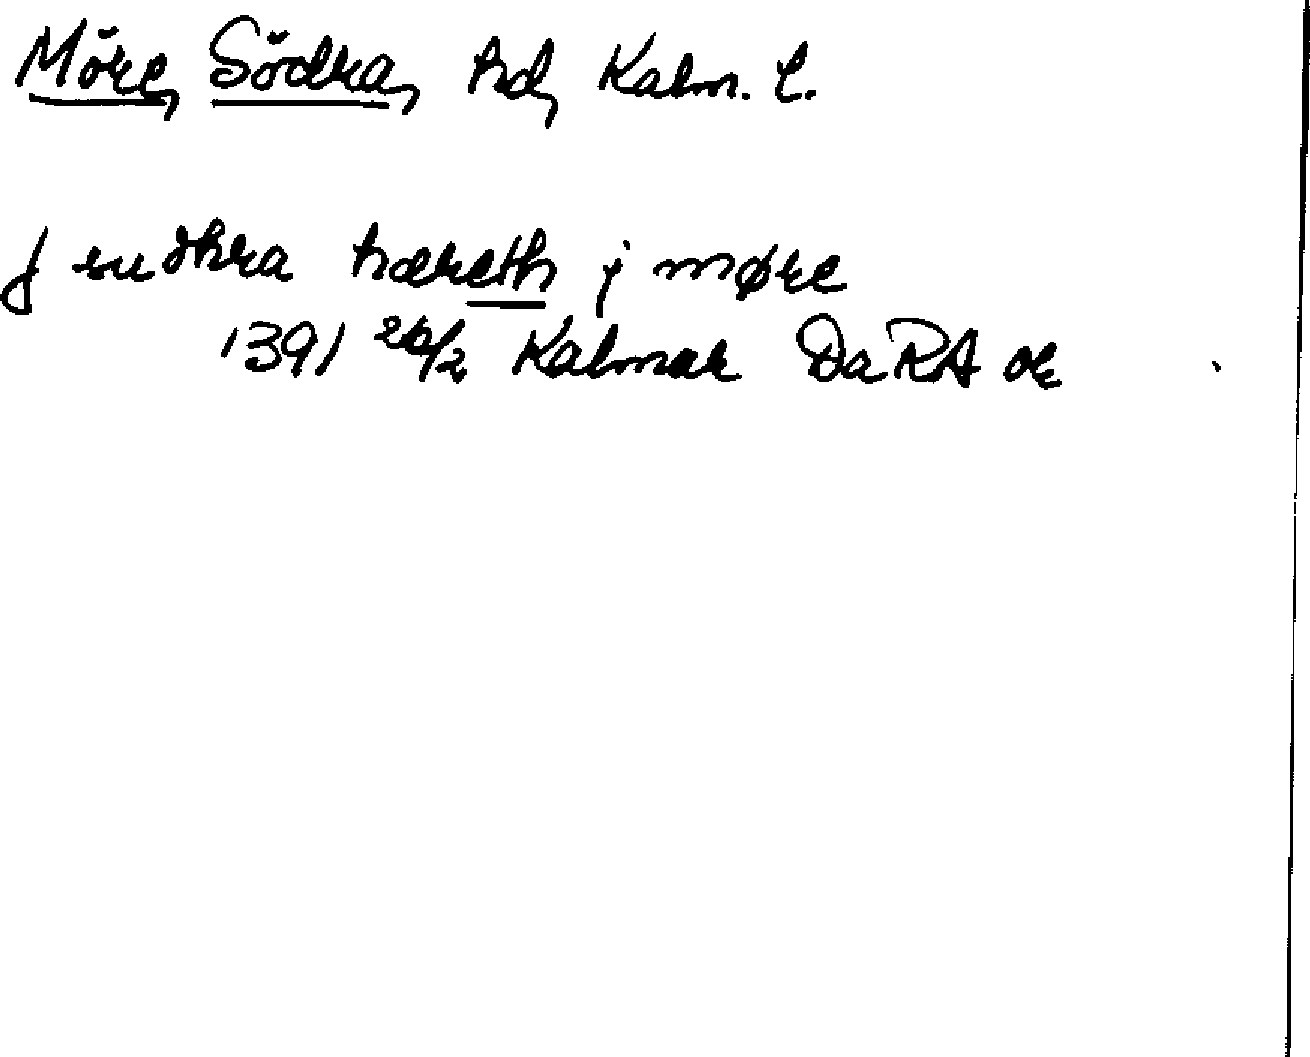 Möre, Södra, hd, Kalm. l.
J sudhra hæreth j møre
1391 26/2 Kalmar DaRA or